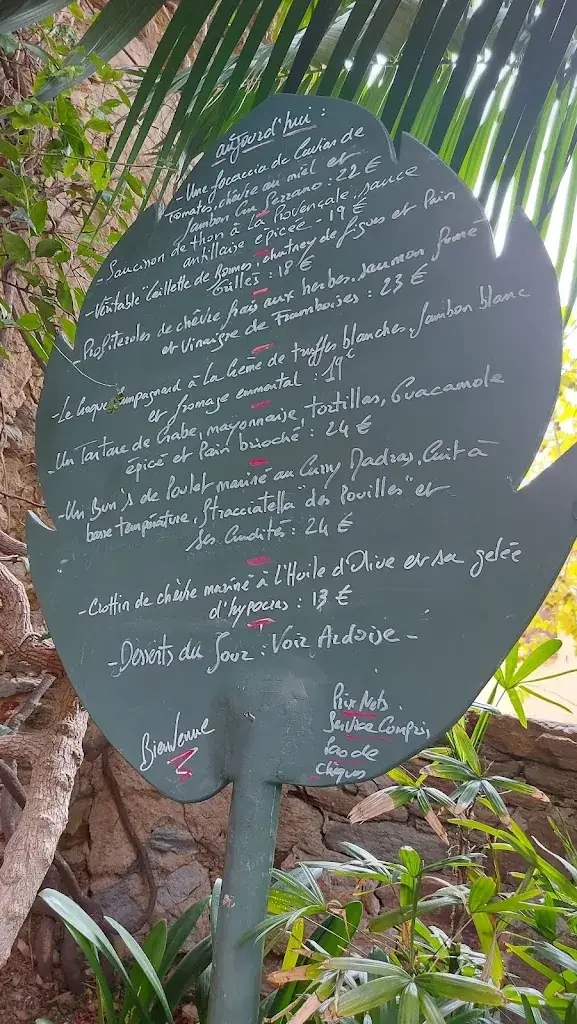 aujourd'hui :
- Une focaccia de Caviar de
Tomates, chèvre au miel et
Jambon Cru Serrano : 22 €
- Saucisson de thon à la Provençale, sauce
antillaise épicée - 19 €
- Véritable "Caillette de Bormes", chutney de figues et Pain
Grillés : 18 €
- Profiteroles de chèvre frais aux herbes, saumon fumé
et Vinaigre de Framboises : 23 €
- Le Croque Campagnard à la Crème de truffes blanches, Jambon blanc
et fromage emmental : 19€
- Un Tartare de Crabe, mayonnaise, tortillas, Guacamole
épicé et Pain brioché : 24 €
- Un Bun's de Poulet mariné au Curry Madras, Cuit à
basse température, Stracciatella "des Pouilles" et
ses Crudités : 24 €
- Crottin de chèvre mariné à l'Huile d'Olive et sa gelée
d'hypocras : 13 €
- Desserts du Jour : Voir Ardoise -
Bienvenue
Prix Nets
Service Compris,
Pas de
chèques